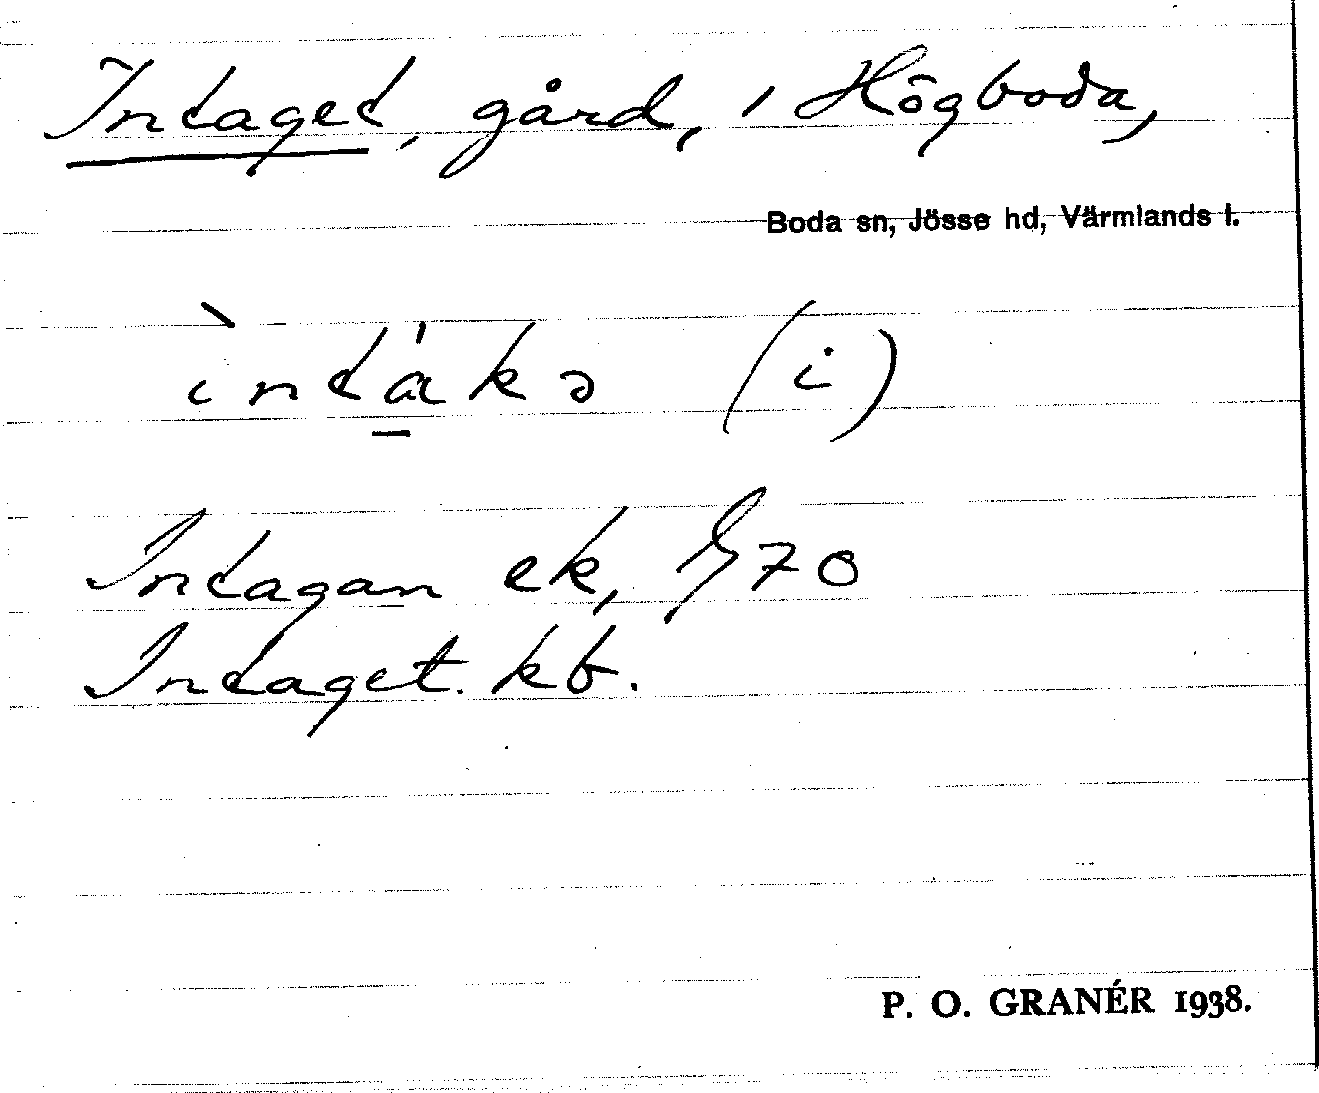 Intaget, gård, i Högboda,
Boda sn, Jösse hd, Värmlands l.
ìntákə (i)
Intagan ek, G70
Intaget kb.
P. O. GRANÉR 1938.